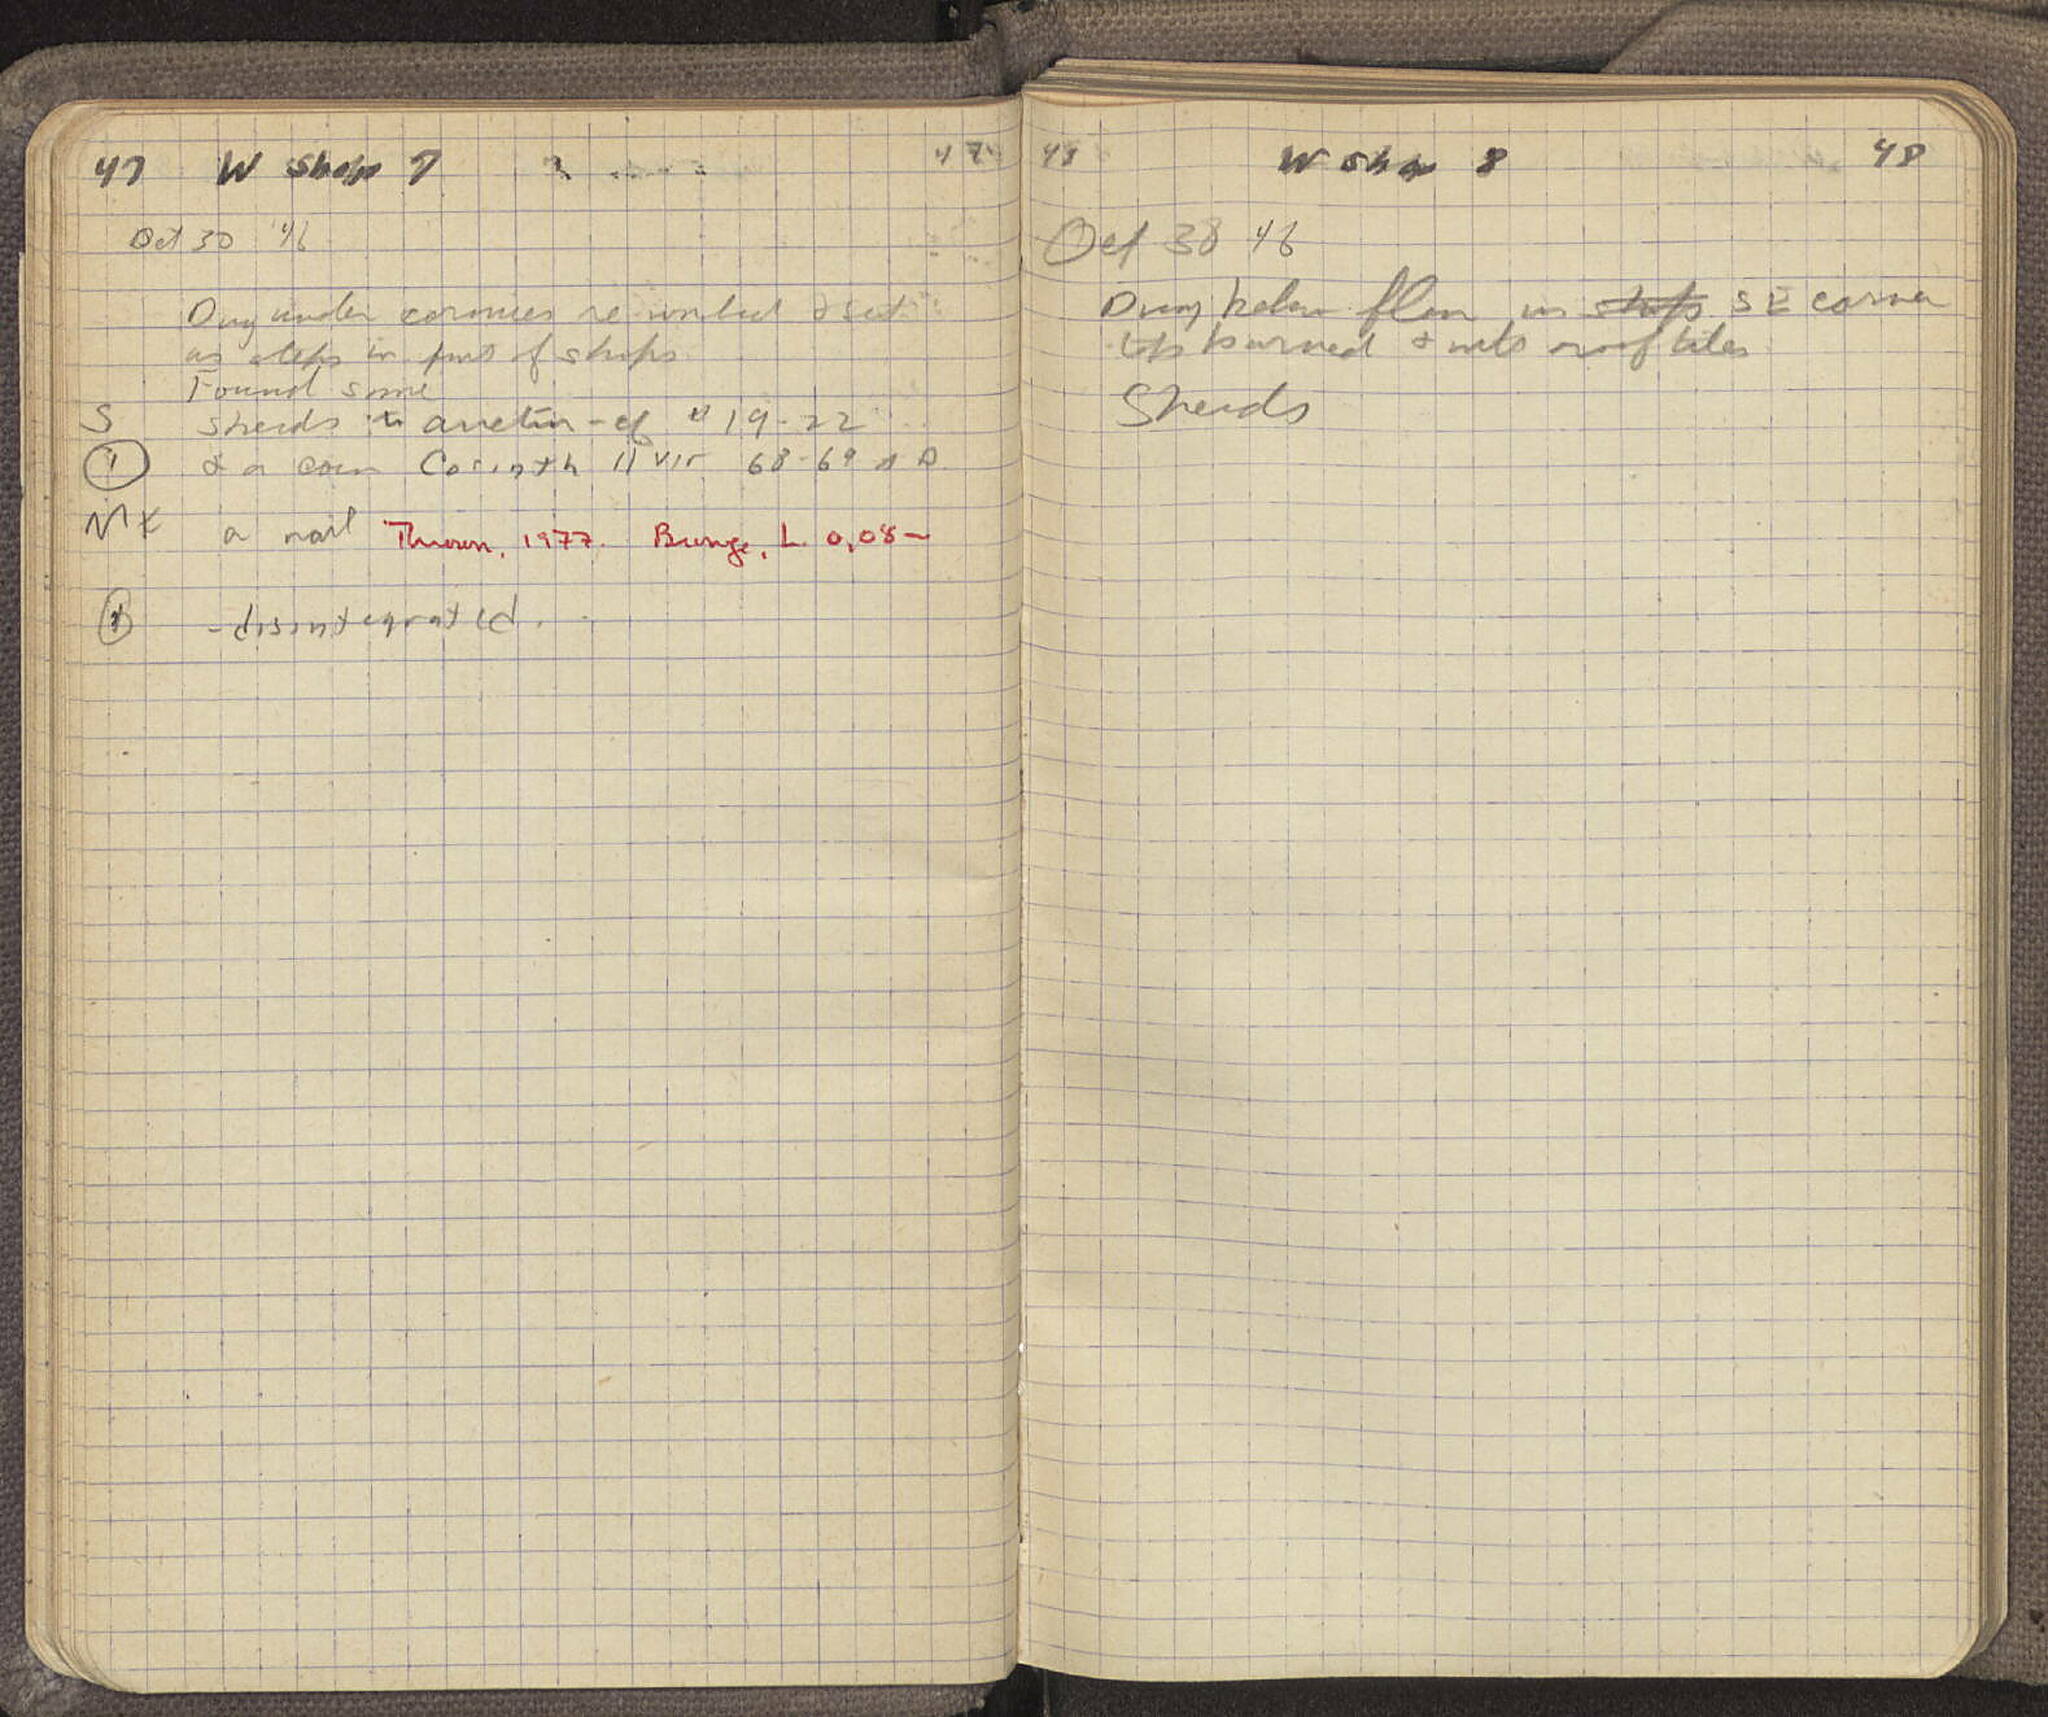 47 W Shop 7 47
Oct 30 46
Dug under cornices re worked & set
as steps in front of shops
Found some
S sherds to arretin - cf # 19-22
1 & a coin Corinth II vir 68-69 A D
a nail Thrown, 1977. L. 0,08-
1 - disintegrated.
48 W Shop 8 48
Oct 30 46
Dug below floor in shops SE corner
lots burned & roof tiles
Sherds